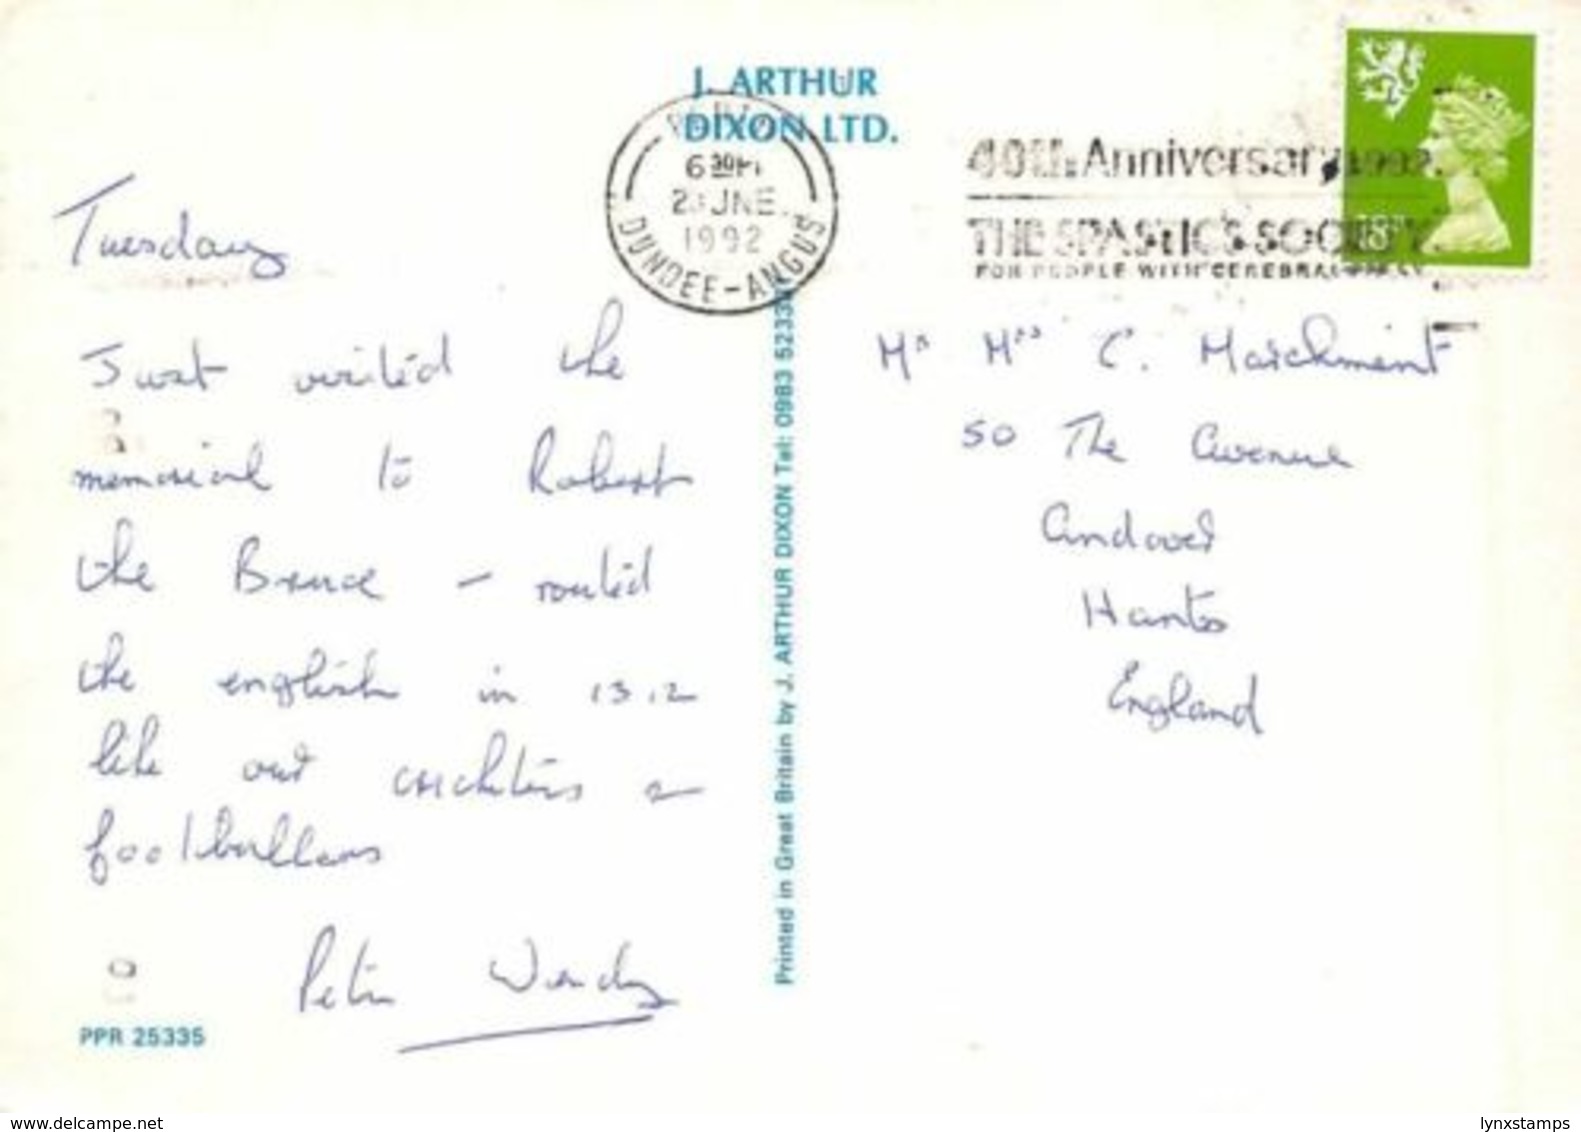 J. ARTHUR
DIXON LTD.
6 30 PM
JNE
1992
DUNDEE-ANGUS
40th Anniversary 1992
THE SPASTICS SOCIETY
FOR PEOPLE WITH CEREBRAL PALSY
18P
Tuesday
Just visited the
memorial to Robert
the Bruce – routed
the english in 1312
like our cricketers &
footballers
Peter Wendy
PPR 25335
Printed in Great Britain by J. ARTHUR DIXON Tel: 0983 5233
Mr Mrs C. Marchment
50 The Avenue
Andover
Hants
England
delcampe.net
lynxstamps